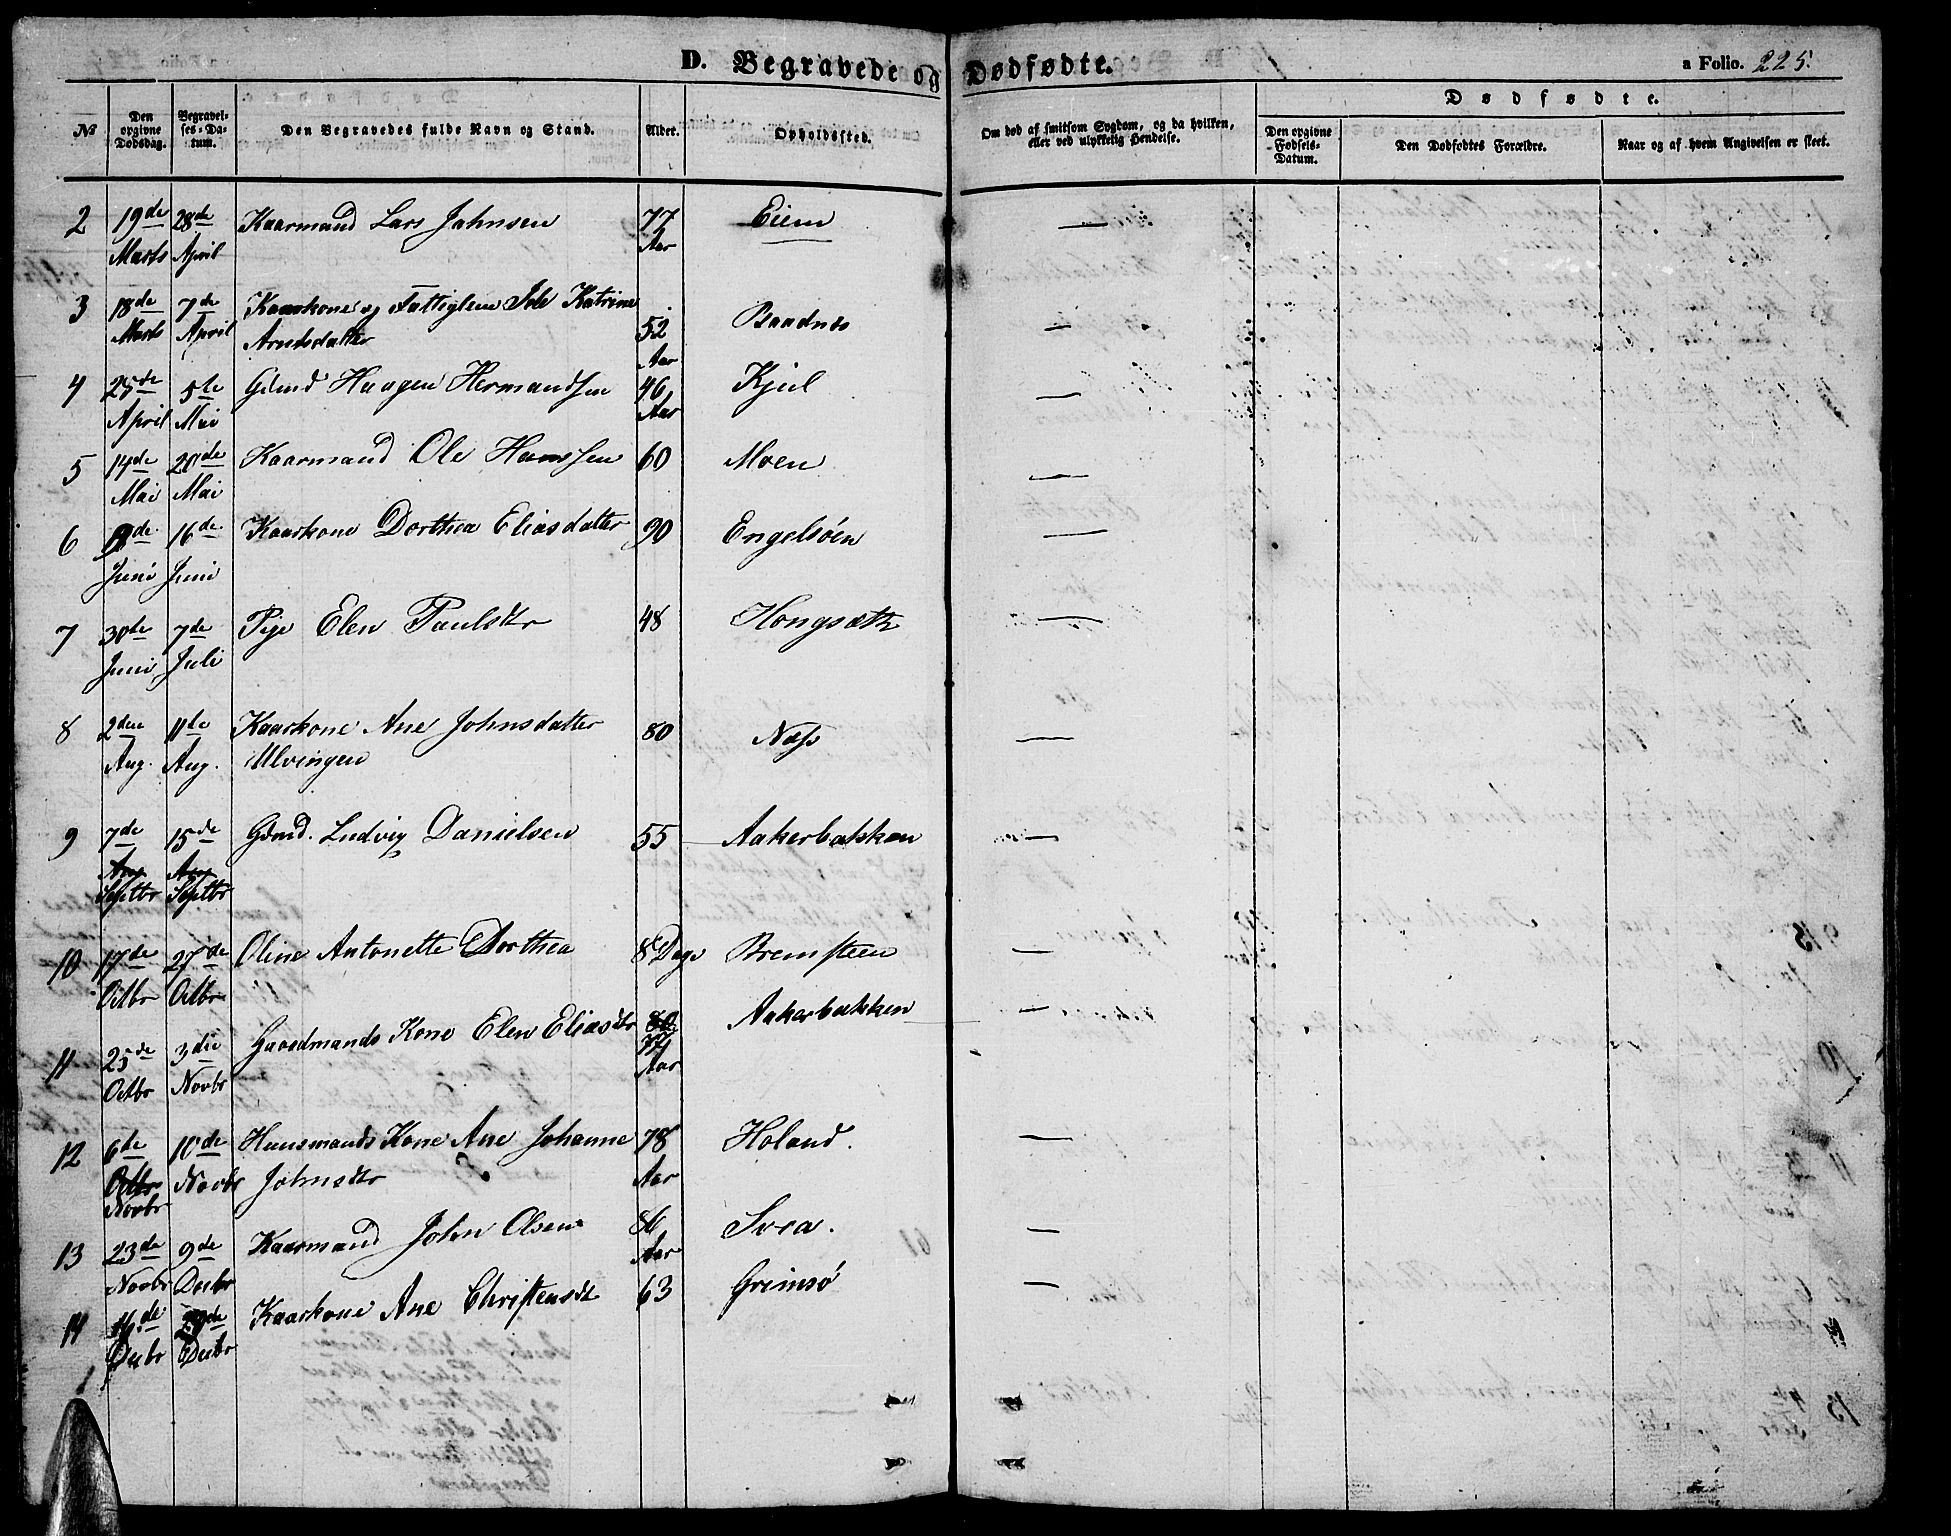 D. Begravede og Dødfødte.
a Folio. 225.
Dødfødte.
No
Den opgivne Dødsdag.
Begravelses-Datum.
Den Begravedes fulde Navn og Stand.
Alder.
Opholdssted.
Om død af smitsom Sygdom, og da hvilken, eller ved ulykkelig Hendelse.
Den opgivne Fødsels-Datum.
Den Dødfødtes Forældre.
Naar og af hvem Angivelsen er skeet.
2 19de 28de Kaarmand Lars Johnsen 77 Eiem —
Marts April Aar
3 18de 7de Kaarkone og Fattiglem Katrine 52 Baadnes —
Marts April Arntsdatter Aar
4 25de 5te Gdmd Haagen Hermandsen 46 Kjul —
April Mai Aar
5 14de 20de Kaarmand Ole Hanssen 60 Moen —
Mai Mai
6 16de Kaarkone Dorthea Eliasdatter 90 Engelsöen —
Juni Juni
7 30te 7de Pige Elen Paulsdtr 48 Hongsæth —
Juni Juli
8 2den 11te Kaarkone Ane Johnsdatter 80 Næss —
Aug. Aug. Ulvingen
9 7de 15de Gdmd. Ludvig Danielsen 55 Aakerbakken —
Aug Aug
Septbr Septbr
10 17de 27de Oline Antonette Dorthea 8 Dage Bremsteen —
Octbr Octbr
11 25de 3die Gaardmands Kone Elen Eliasdtr 80 Aakerbakken —
Octbr Novbr 77 Aar
12 6te 10de Huusmands Kone Ane Johanne 78 Holand. —
Octbr Novbr Johnsdtr Aar
Novbr
13 23de 9de Kaarmand John Olsen 86 Svea. —
Novbr Decbr Aar
14 16de Kaarkone Ane Christensdt 63 Grimsö —
Decbr Decbr